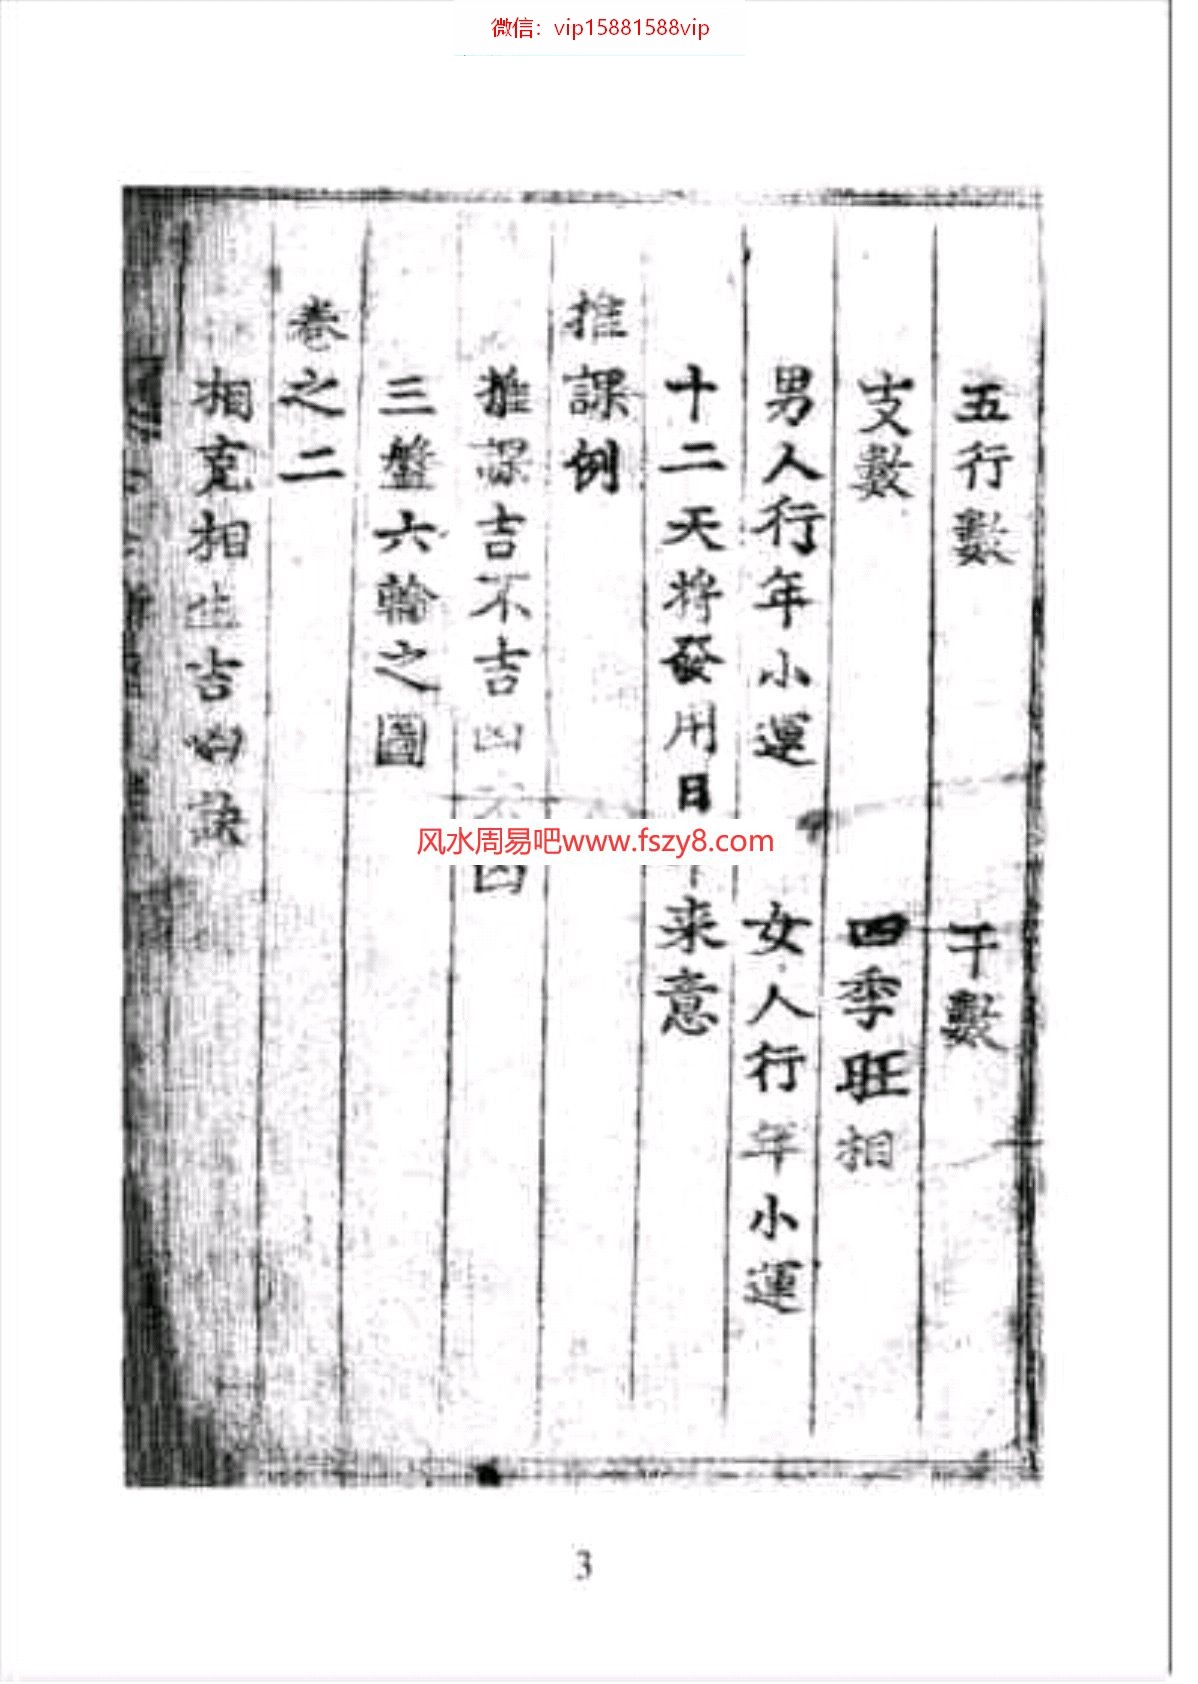 微信：vip15881588vip
五行數　干數
支數　四季旺相
男人行年小運　女人行年小運
十二天將發用日　来意
推課例
推課吉不吉凶不凶
三盤六輪之圖
卷之二
相克相生吉凶訣
风水周易吧www.fszy8.com
3